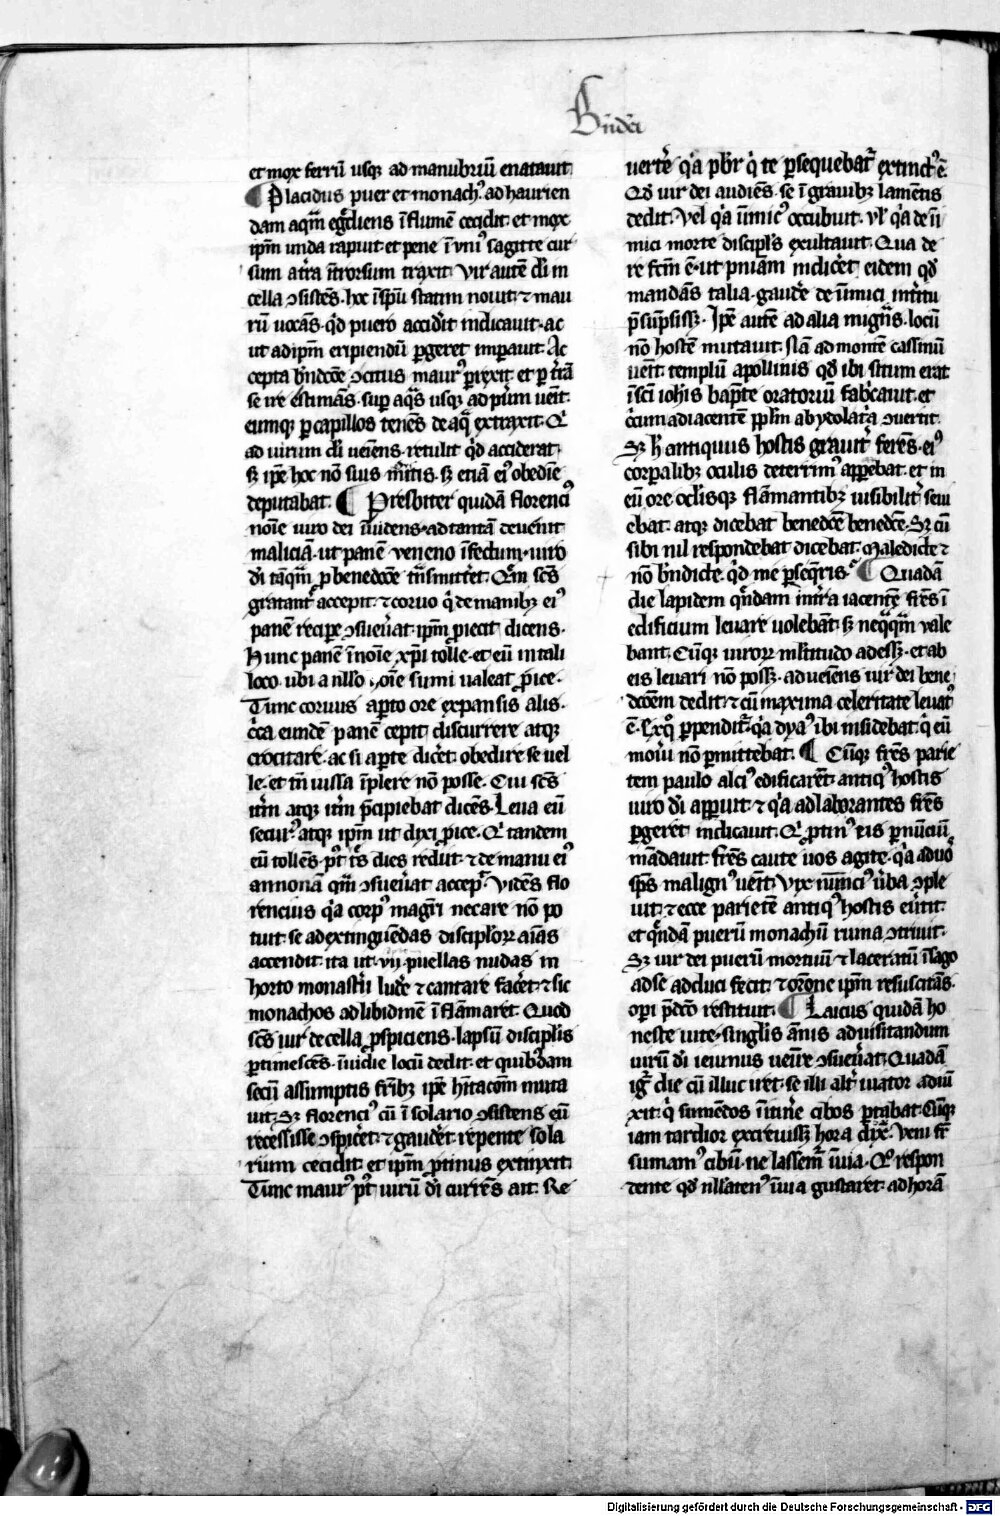 Bn̄dc̄i
et mox ferrū usq; ad manubriū enatauit
¶ Placidus puer et monachꝰ ad haurien
dam aquā egͣdiens ī flumē cecidit · et mox
ipm̄ unda rapuit · et pene ī vniꝰ sagitte cur
sum at̄ra īt̄rorsum traxit · Vir autē di̅ in
cella ↄsistēs · hoc ī sp̄u statim nouit · ⁊ mau
rū uocās · qd̓ puero accidit̓ indicauit · ac
ut ad ipm̄ eripiendū ꝑgeret imꝑauit · Ac
cepta bn̄dcōe ↄcitus maurꝰ ꝑrexit · et ꝑ t̄rā
se ire estimās · suꝑ aqͣs usq; ad pūm uēit ·
eumq; ꝑ capillos tenēs de aqͣ extraxit · Qͥ
ad uirum di̅ ueiēns · retulit qd̓ acciderat ·
sꝫ ipē hoc nō suis mītis · sꝫ etiā eiꝰ obediē
deputabat · ¶ Presbiter quidā florenciꝰ
noīe uiro dei īuidens · ad tantā deuenit
maliciā · ut panē veneno īfectum · uiro
di̅ tāqm̄ ꝓ benedcōe tn̄smitt̓et · Qm̄ sc̄s
gratant̓ accepit · ⁊ coruo qͥ de manibꝫ eiꝰ
panē reciꝑe ↄsueūat · ipm̄ ꝓiecit dicens ·
Hunc panē ī noīe xp̄i tolle · et eū in tali
loco ubi a nllo hoīe sumi ualeat ꝓice ·
Tunc coruus aꝑto ore expansis alis ·
cͥca eundē panē cepit discurrere atq;
crocitare · ac si aꝑte dic̓et · obedire se uel
le · et tn̄ iussa īplere nō posse · Cui sc̄s
itm̄ atq; itm̄ p̄cipiebat dicēs · Leua eū
securꝰ atq; ipm̄ ut dixi ꝓice · Qͥ tandem
eū tollēs · pꝰt tr̄s dies rediit · ⁊ de manu eiꝰ
annonā qm̄ ↄsueūat accepͭ · Vidēs flo
rencius qͥa corpꝰ magr̄i necare nō po
tuit · se ad extinguēdas discipl̓oꝝ aīas
accendit · ita ut · vij · puellas nudas in
horto monastr̄ii lud̓e ⁊ cantare fac̓et · ⁊ sic
monachos ad libidinē ī flāmaret · Quod
sc̄s uir de cella ꝓspiciens · lapsū discipl̓is
ꝑtimescēs · īuidie locū dedit · et quibͥdam
secū assumptis fr̄ibꝫ ipē hītacōm muta
uit · Sꝫ florenciꝰ cū ī solario ↄsistens eū
recessisse ↄspic̓et · ⁊ gaud̓et · repente sola
rium cecidit · et ipm̄ ꝓtinus extinxit ·
Tunc maurꝰ pꝰt uirū di̅ currēs ait · Re
uert̓e qͥa pbr̄ qͥ te ꝑsequebat̓ extinctꝰ ē ·
Qd̓ uir dei audiēs · se ī grauibꝫ lamētis
dedit · Vel qͥa īimicꝰ occubuit · vl̓ qͥa de īi
mici morte discipl̓s exultauit · Qua de
re fc̄m ē · ut pn̄iam indic̓et eidem qd̓
mandās talia · gaud̓e de īimici int̓itu
p̄sūpsissꝫ · Ipē autē ad alia migͣns · locū
nō hostē mutauit · Nā ad montē cassinū
uēit · templū apollinis qd̓ ibi situm erat
ī sc̄i ioh̄is bapt̄e oratoriū fab̓cauit · et
cͥcumadiacentē pp̄lm ab ydolat̓a ↄuertit ·
Sꝫ h̓ antiquus hostis grauit̓ ferēs · eiꝰ
corꝑalibꝫ oculis deterrimꝰ apꝑebat · et in
eū ore oclisq; flāmantibꝫ uisibilit̓ seui
ebat · atq; dicebat benedc̄e benedc̄e · Sꝫ cū
sibi nil respondebat dicebat · Maledicte ⁊
nō bn̄dicte · qd̓ me ꝑseqͥris · ¶ Quadā
die lapidem qn̄dam int̓ra iacentē fr̄es ī
edificium leuare uolebāt · sꝫ neqͣqͣm vale
bant · Cūq; uiroꝝ mltitudo adessꝫ · et ab
eis leuari nō possꝫ · adueiēns uir dei bene
dcōem dedit · ⁊ cū maxima celeritate leuatꝰ
ē · Ex qͦ ꝑpendit̓ · qͥa dyaꝰ ibi insidebat · qͥ eū
moūi nō ꝑmittebat · ¶ Cūq; fr̄es parie
tem paulo alciꝰ edificarēt · antiqꝰ hostis
uiro di̅ apꝑuit · ⁊ qͥa ad laborantes fr̄es
ꝑgeret indicauit · Qͥ ꝓtinꝰ eis ꝑ nūciū
mādauit · fr̄es caute uos agite · qͥa ad uoͦ
sp̄s malignꝰ uēit · Vix nūciꝰ ūba ↄple
uit · ⁊ ecce parietē antiqꝰ hostis eūtit ·
et qn̄dā puerū monachū ruina ↄtriuit ·
Sꝫ uir dei puerū mortuū ⁊ laceratū ī sago
ad se adduci fecit · ⁊ orōne ipm̄ resuscitās ·
oꝑi p̄dc̄o restituit · ¶ Laicus quidā ho
neste uite · singlis annis ad uisitandum
uirū di̅ ieiunus ueīre ↄsueūat · Quadā
igͥ die cū illuc iret · se illi alt̓ uiator adiū
xit · qͥ sumēdos ī itin̓e cibos ꝑtabat · Cūq;
iam tardior excreuissꝫ hora dix̄ · Veni fr̄
sumamꝰ cibū · ne lassem̓ ī uia · Qͦ respon
dente qd̓ nllatenꝰ ī uia gustaret · ad horā
Digitalisierung gefördert durch die Deutsche Forschungsgemeinschaft - DFG